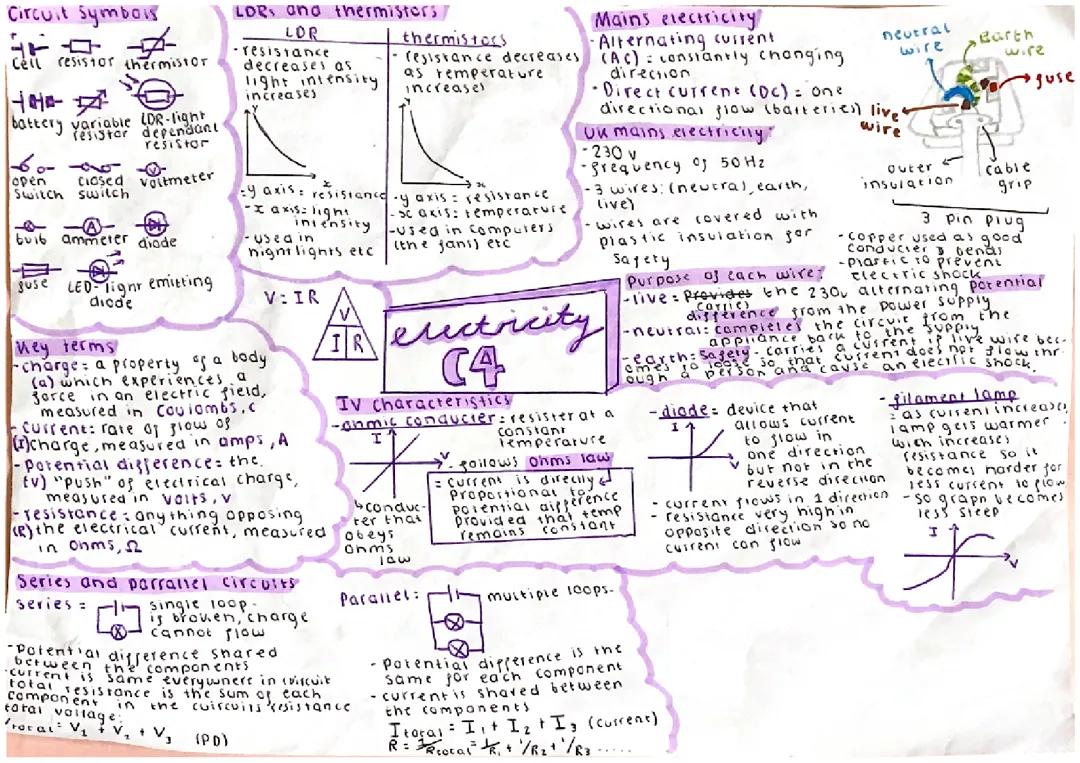 Circuit Symbols
cell resistor thermistor
battery variable resistor LDR-light dependant resistor
open switch closed switch voltmeter
bulb ammeter diode
fuse LED-light emitting diode
LDRs and thermistors
LDR
- resistance
decreases as
light intensity
increases
y
x
- y axis: resistance
- x axis: light
intensity
- used in
nightlights etc
thermistors
- resistance decreases
as temperature
increases
x
- y axis: resistance
- x axis: temperature
- used in computers
(the fans) etc
Mains electricity
- Alternating current
(AC): constantly changing
direction
- Direct current (DC): one
directional flow (batteries)
UK mains electricity:
- 230 v
- frequency of 50 Hz
- 3 wires: (neutral, earth,
live)
- wires are covered with
plastic insulation for
safety
neutral
wire
Earth
wire
fuse
live
wire
outer
insulation
cable
grip
3 pin plug
- copper used as good
conducter & bends
- plastic to prevent
electric shock
Purpose of each wire:
- live: Provides carries the 230v alternating potential
difference from the power supply
- neutral: completes the circuit from the
appliance back to the supply
- earth: Safety - carries a current if live wire bec-
omes so loose so that current does not flow thr-
ough a person and cause an electric shock.
V = IR
V
I R
electricity
C4
Key terms
- charge: a property of a body
(Q) which experiences a
force in an electric field,
measured in Coulombs, C
- Current: rate of flow of
(I) charge, measured in amps, A
- Potential difference: the
(V) "push" of electrical charge,
measured in volts, V
- resistance: anything opposing
(R) the electrical current, measured
in Ohms, Ω
IV Characteristics
- Ohmic conducter: resister at a
constant
temperature
I
V
- follows Ohms law
= current is directly
proportional to
potential difference
provided that temp
remains constant
↳ conduc-
ter that
obeys
Ohms
law
- diode: device that
allows current
to flow in
one direction
but not in the
reverse direction
I
V
- current flows in 1 direction
- resistance very high in
opposite direction so no
current can flow
- filament lamp
: as current increases,
lamp gets warmer
wich increases
resistance so it
becomes harder for
less current to flow
- so graph becomes
less steep
I
V
Series and parrallel circuits
Series =
single loop -
is broken, charge
cannot flow
- Potential difference shared
between the components
- current is same everywhere in circuit
total resistance is the sum of each
component in the cuircuits resistance
total voltage:
Vtotal = V₁ + V₂ + V₃ (PD)
Parallel:
multiple loops-
- Potential difference is the
same for each component
- current is shared between
the components
Itotal = I₁ + I₂ + I₃ (current)
R = 1/Rtotal = 1/R₁ + 1/R2 + 1/R3 .....